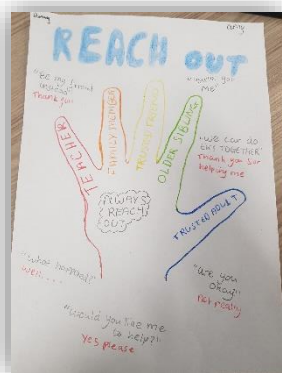 REACH OUT
"Be my friend
instead"
Thank you
me"
TEACHER
FAMILY MEMBER
TRUSTED FRIEND
OLDER SIBLING
TRUSTED ADULT
"We can do
TOGETHER"
Thank you for
helping me
ALWAYS
REACH
OUT
"What happened?"
Well....
"Are you
okay?"
Not really
"Would you like me
to help?"
Yes please